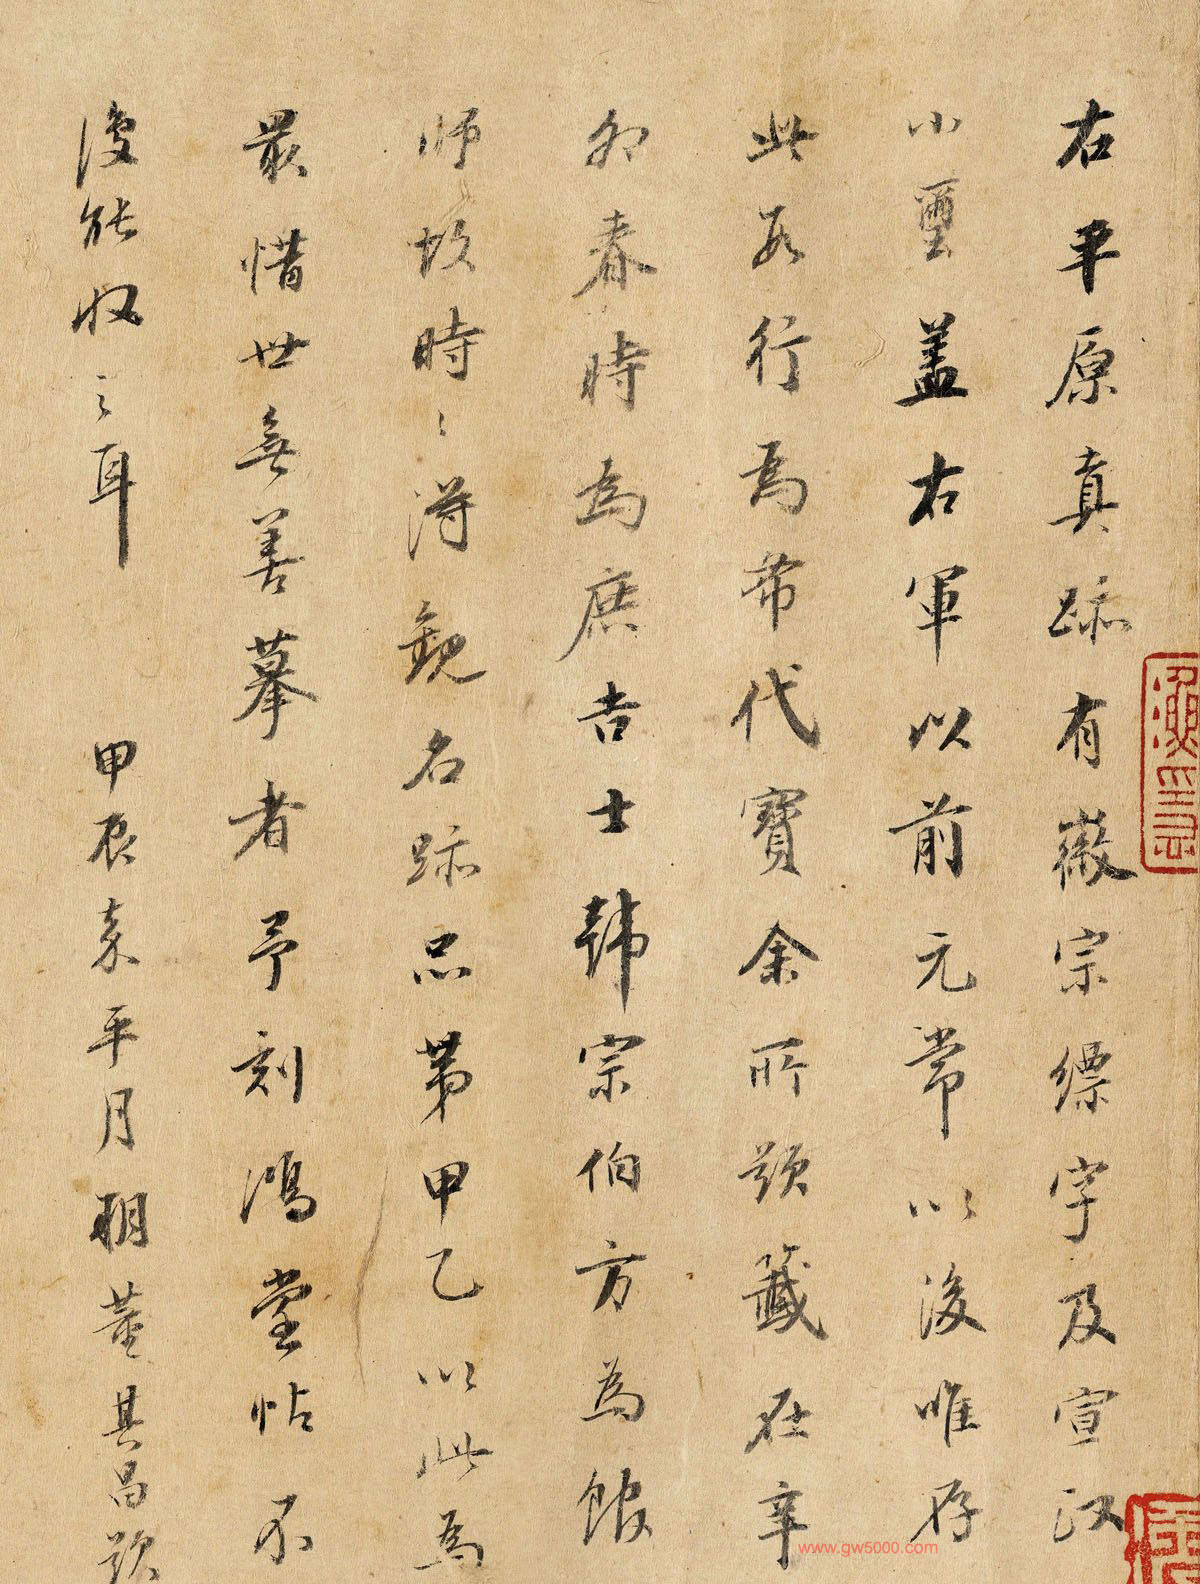 右平原真跡有徽宗縹字及宣政
小璽盖右軍以前元常以後唯存
此數行為希代寶余所題籤在辛
卯春時為庶吉士韓宗伯方為館
師故時〻得觀名跡品第甲乙以此為
最惜世無善摹者予刻鴻堂帖不
復能收之耳
甲辰嘉平月朔董其昌題
www.gw5000.com